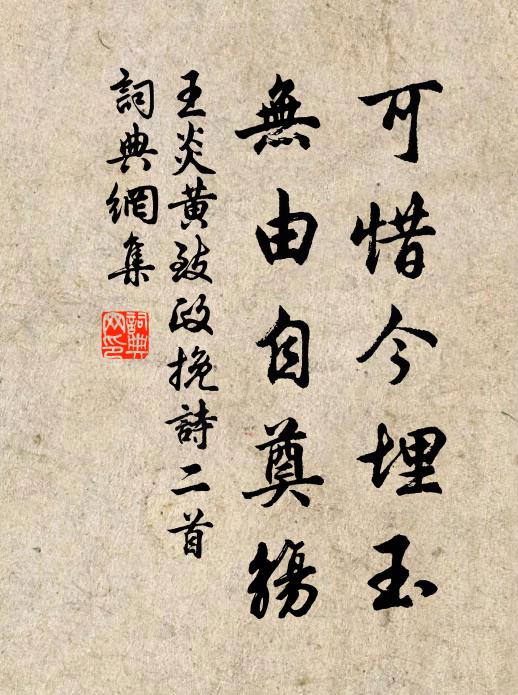 可惜今埋玉
無由自奠觴
王炎黄致政挽詩二首
詞典網集
詞典網印